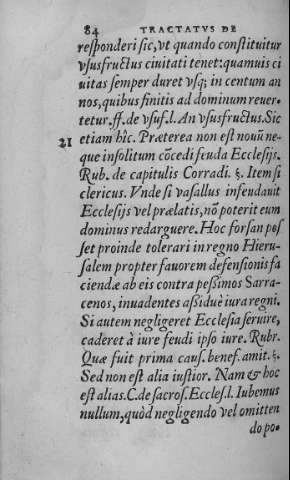 84 TRACTATVS DE
responderi sic, vt quando constituitur
vsusfructus ciuitati tenet: quamuis ci
uitas semper duret vsq; in centum an
nos, quibus finitis ad dominum reuer-
tetur. ff. de vsuf. l. An vsusfructus. Sic
21 etiam hîc. Præterea non est nouũ ne-
que insolitum cõcedi feuda Ecclesijs.
Rub. de capitulis Corradi. §. Item si
clericus. Vnde si vasallus infeudauit
Ecclesijs vel prælatis, nõ poterit eum
dominus redarguere. Hoc forsan pos
set proinde tolerari in regno Hieru-
salem propter fauorem defensionis fa
ciendæ ab eis contra pessimos Sarra-
cenos, inuadentes assiduè iura regni.
Si autem negligeret Ecclesia seruire,
caderet à iure feudi ipso iure. Rubr.
Quæ fuit prima caus. benef. amit. §.
Sed non est alia iustior. Nam & hoc
est alias. C. de sacros. Eccles. l. Iubemus
nullum, quòd negligendo vel omitten
do po-